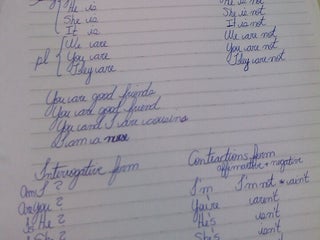 He is He is not
She is She is not
It is It is not
We are We are not
pl You are You are not
They are They are not
You are good friends
You are good friend
You and I are cousins
I am a nurse
Interrogative form Contractions form
affirmative + negative
Am I ? I'm I'm not * ain't
Are you ? You're aren't
Is He ? He's isn't
Is She ? She's isn't